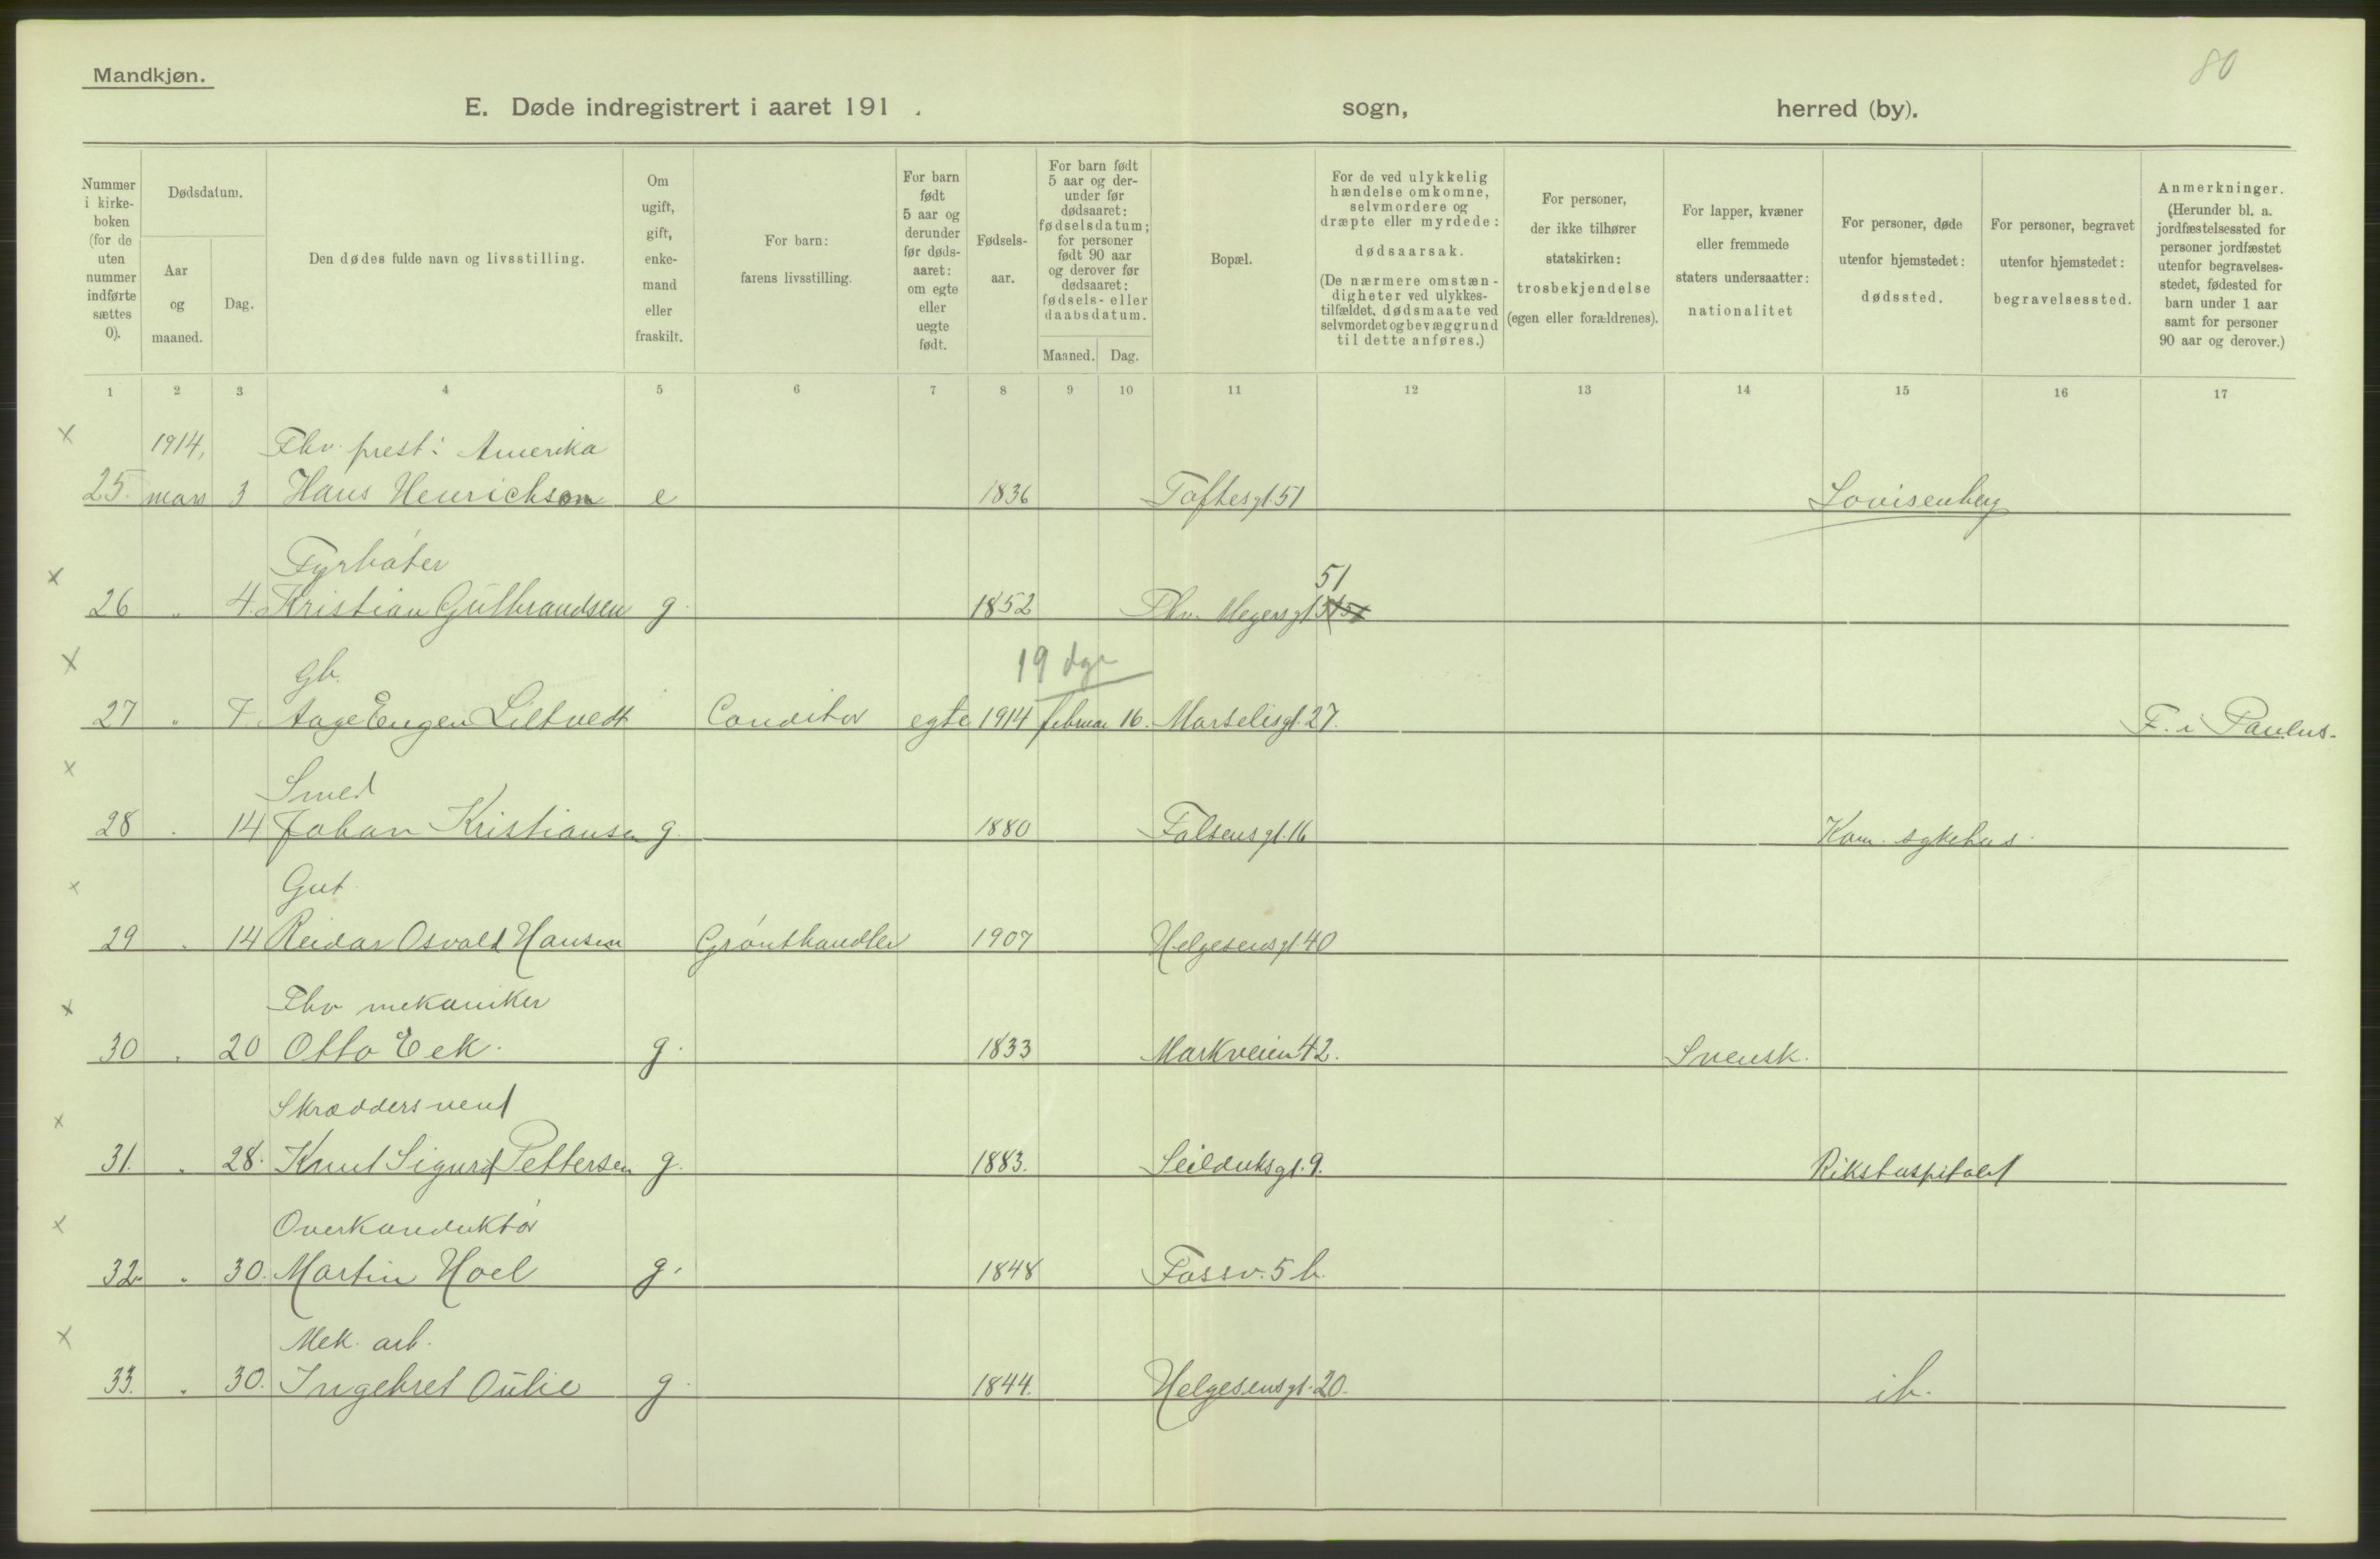 80
Mandkjøn.
E. Døde indregistrert i aaret 191 . sogn, herred (by).
Nummer i kirke-boken (for de uten nummer indførte sættes 0).
Dødsdatum.
Aar og maaned.
Dag.
Den dødes fulde navn og livsstilling.
Om ugift, gift, enke-mand eller fraskilt.
For barn: farens livsstilling.
For barn født 5 aar og derunder før døds-aaret: om egte eller uegte født.
Fødsels-aar.
For barn født 5 aar og der-under før dødsaaret: fødselsdatum; for personer født 90 aar og derover før dødsaaret: fødsels- eller daabsdatum.
Maaned. Dag.
Bopæl.
For de ved ulykkelig hændelse omkomne, selvmordere og dræpte eller myrdede: dødsaarsak. (De nærmere omstæn-digheter ved ulykkes-tilfældet, dødsmaate ved selvmordet og bevæggrund til dette anføres.)
For personer, der ikke tilhører statskirken: trosbekjendelse (egen eller forældrenes).
For lapper, kvæner eller fremmede staters undersaatter: nationalitet
For personer, døde utenfor hjemstedet: dødssted.
For personer, begravet utenfor hjemstedet: begravelsessted.
Anmerkninger. (Herunder bl. a. jordfæstelsessted for personer jordfæstet utenfor begravelses-stedet, fødested for barn under 1 aar samt for personer 90 aar og derover.)
1 2 3 4 5 6 7 8 9 10 11 12 13 14 15 16 17
x 1914, Fhv. prest i Amerika
25. mars 3 Hans Henrichson e 1836 Toftesgt. 51 Lovisenberg
x Fyrbøter 51
26 " 4. Kristian Gulbrandsen g. 1852 Thv. Meyersgt
x gb. 19 dge
27 " 7. Aage Eugen Liltvedt Conditor egte 1914 februar 16. Marselisgt. 27. F. i Paulus.
x Smed
28 " 14 Johan Kristiansen g. 1880 Falsensgt. 16 Kom. sykehus.
x Gut
29 " 14 Reidar Osvald Hansen Grønthandler 1907 Helgesensgt 40
x Fhv mekaniker
30 " 20 Otto Eek. g. 1833 Markveien 42. Svensk.
x Skræddersvend
31. " 28. Knut Sigurd Pettersen g. 1883. Seilduksgt. 9. Rikshospitalet
x Overkonduktør
32. " 30. Martin Hoel g. 1848 Fossv. 5 b.
x Mek. arb.
33. " 30. Ingebret Oulie g. 1844. Helgesensgt. 20. ib.